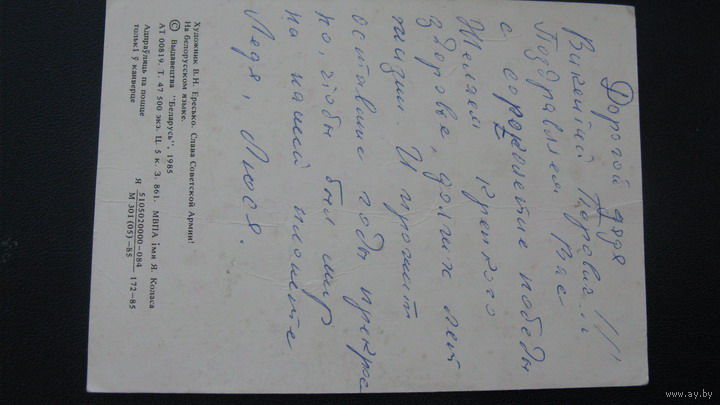 Дорогой дядя
Викентий
Поздравляем Вас
с сорокалетие победы
Желаем крепкого
здоровье, долгих лет
жизни. И прожит
оставшие годы прекрас
но, чтобы был мир
на нашей планете
Лёдя, Люся.
Художник В.Н. Ересько. Слава Советской Армии!
На белорусском языке.
© Выдавецтва "Беларусь", 1985
АТ 00819. Т. 47 500 экз. Ц. 5 к. З. 861. МВПА імя Я. Коласа
Адпраўляць па пошце
толькі ў канверце
Я 5105020000—084
М 301(05)—85
172—85
www.ay.by